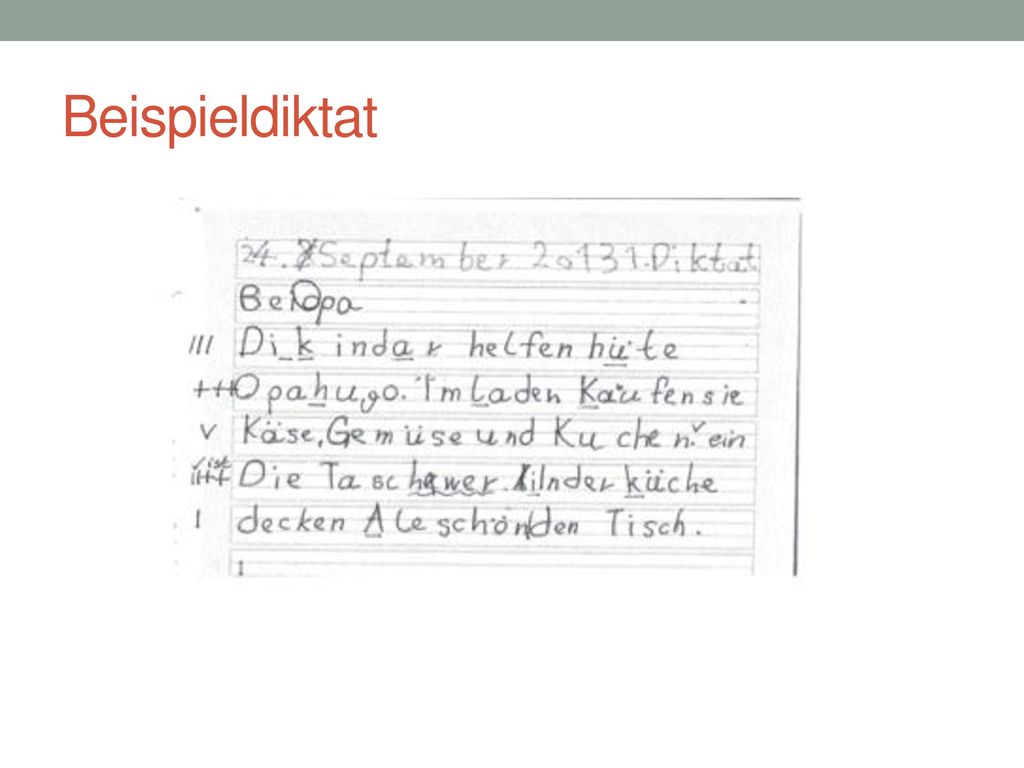 Beispieldiktat
24. September 2013 1. Diktat
Bei Opa
/// Di_k indar helfen hüte
+++ Opahugo. Im Laden Kaufensie
v Käse, Gemüse und Ku chen. v ein
v ist Die Ta sc hewer. Kilnder küche
I decken Ale schön den Tisch.